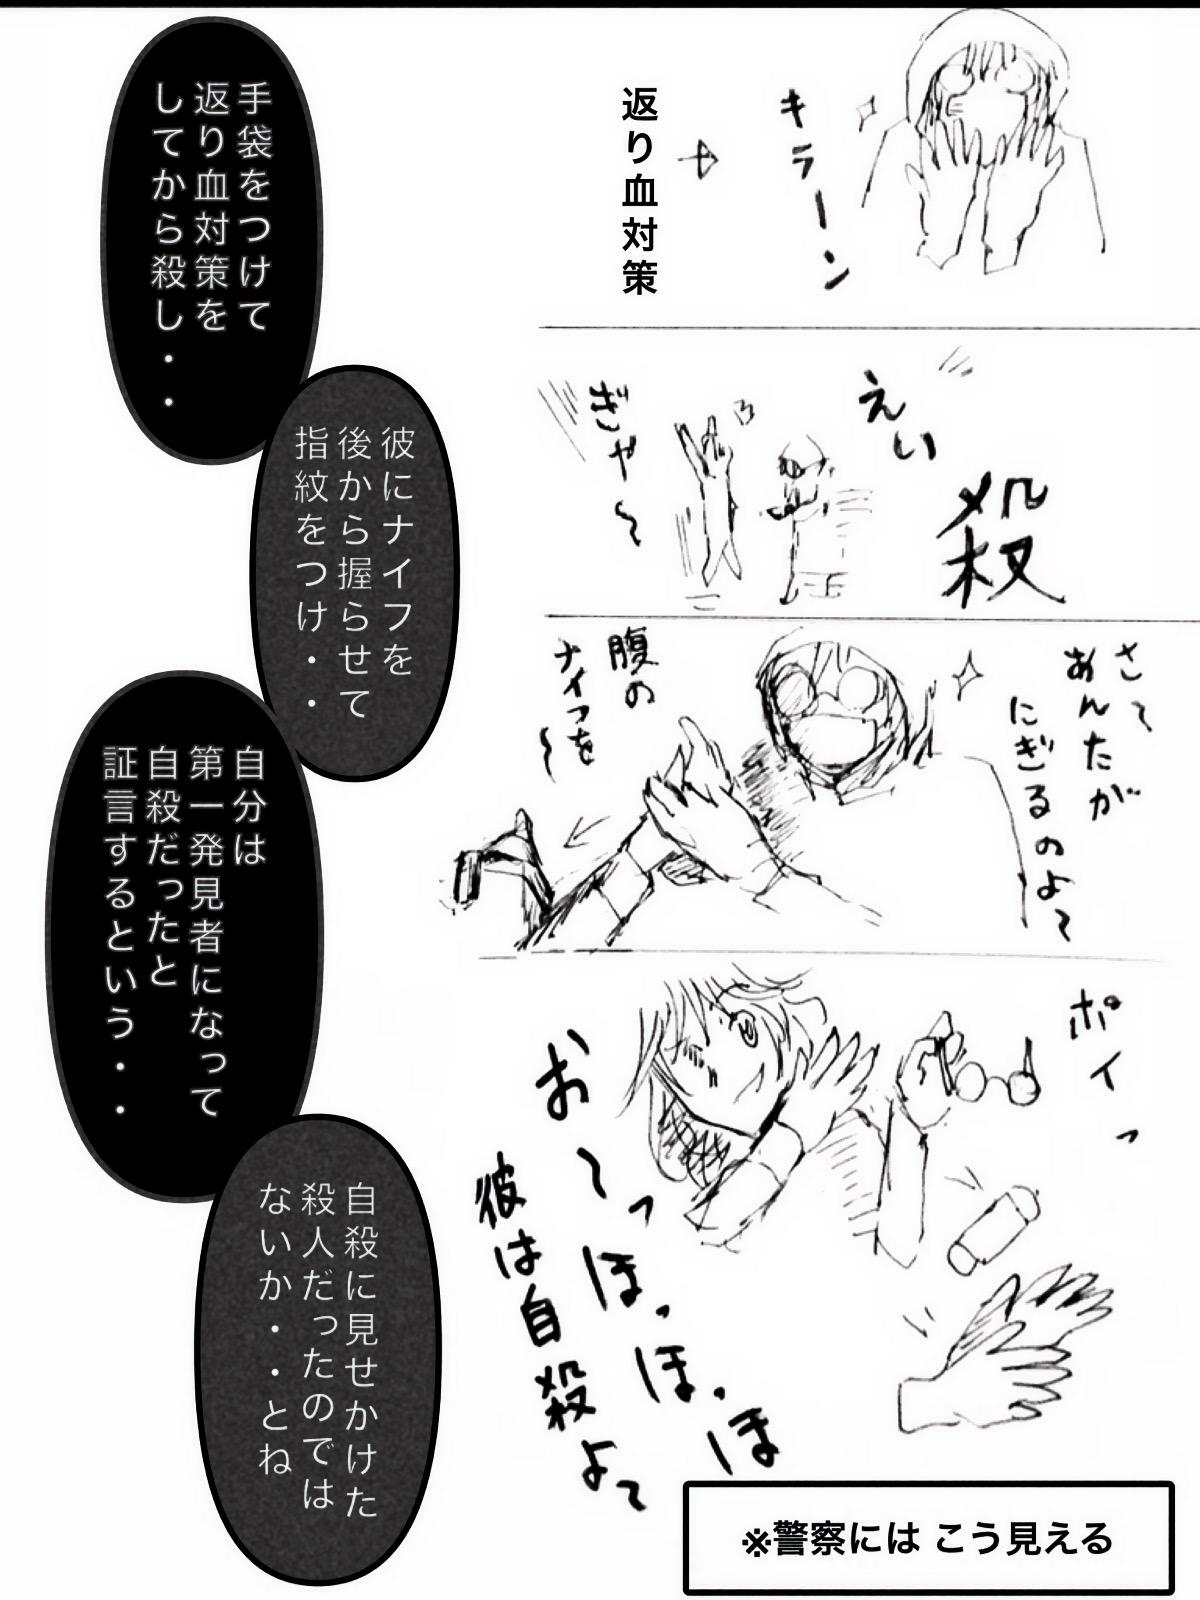 キラーン
返り血対策
手袋をつけて
返り血対策を
してから殺し・・
えい
殺
ぎゃ〜
彼にナイフを
後から握らせて
指紋をつけ・・
さて
あんたが
にぎるのよ〜
腹の
ナイフを〜
自分は
第一発見者になって
自殺だったと
証言するという・・
ポイっ
お〜っほっほっほ
彼は自殺よ〜
自殺に見せかけた
殺人だったのでは
ないか・・とね
※警察には こう見える